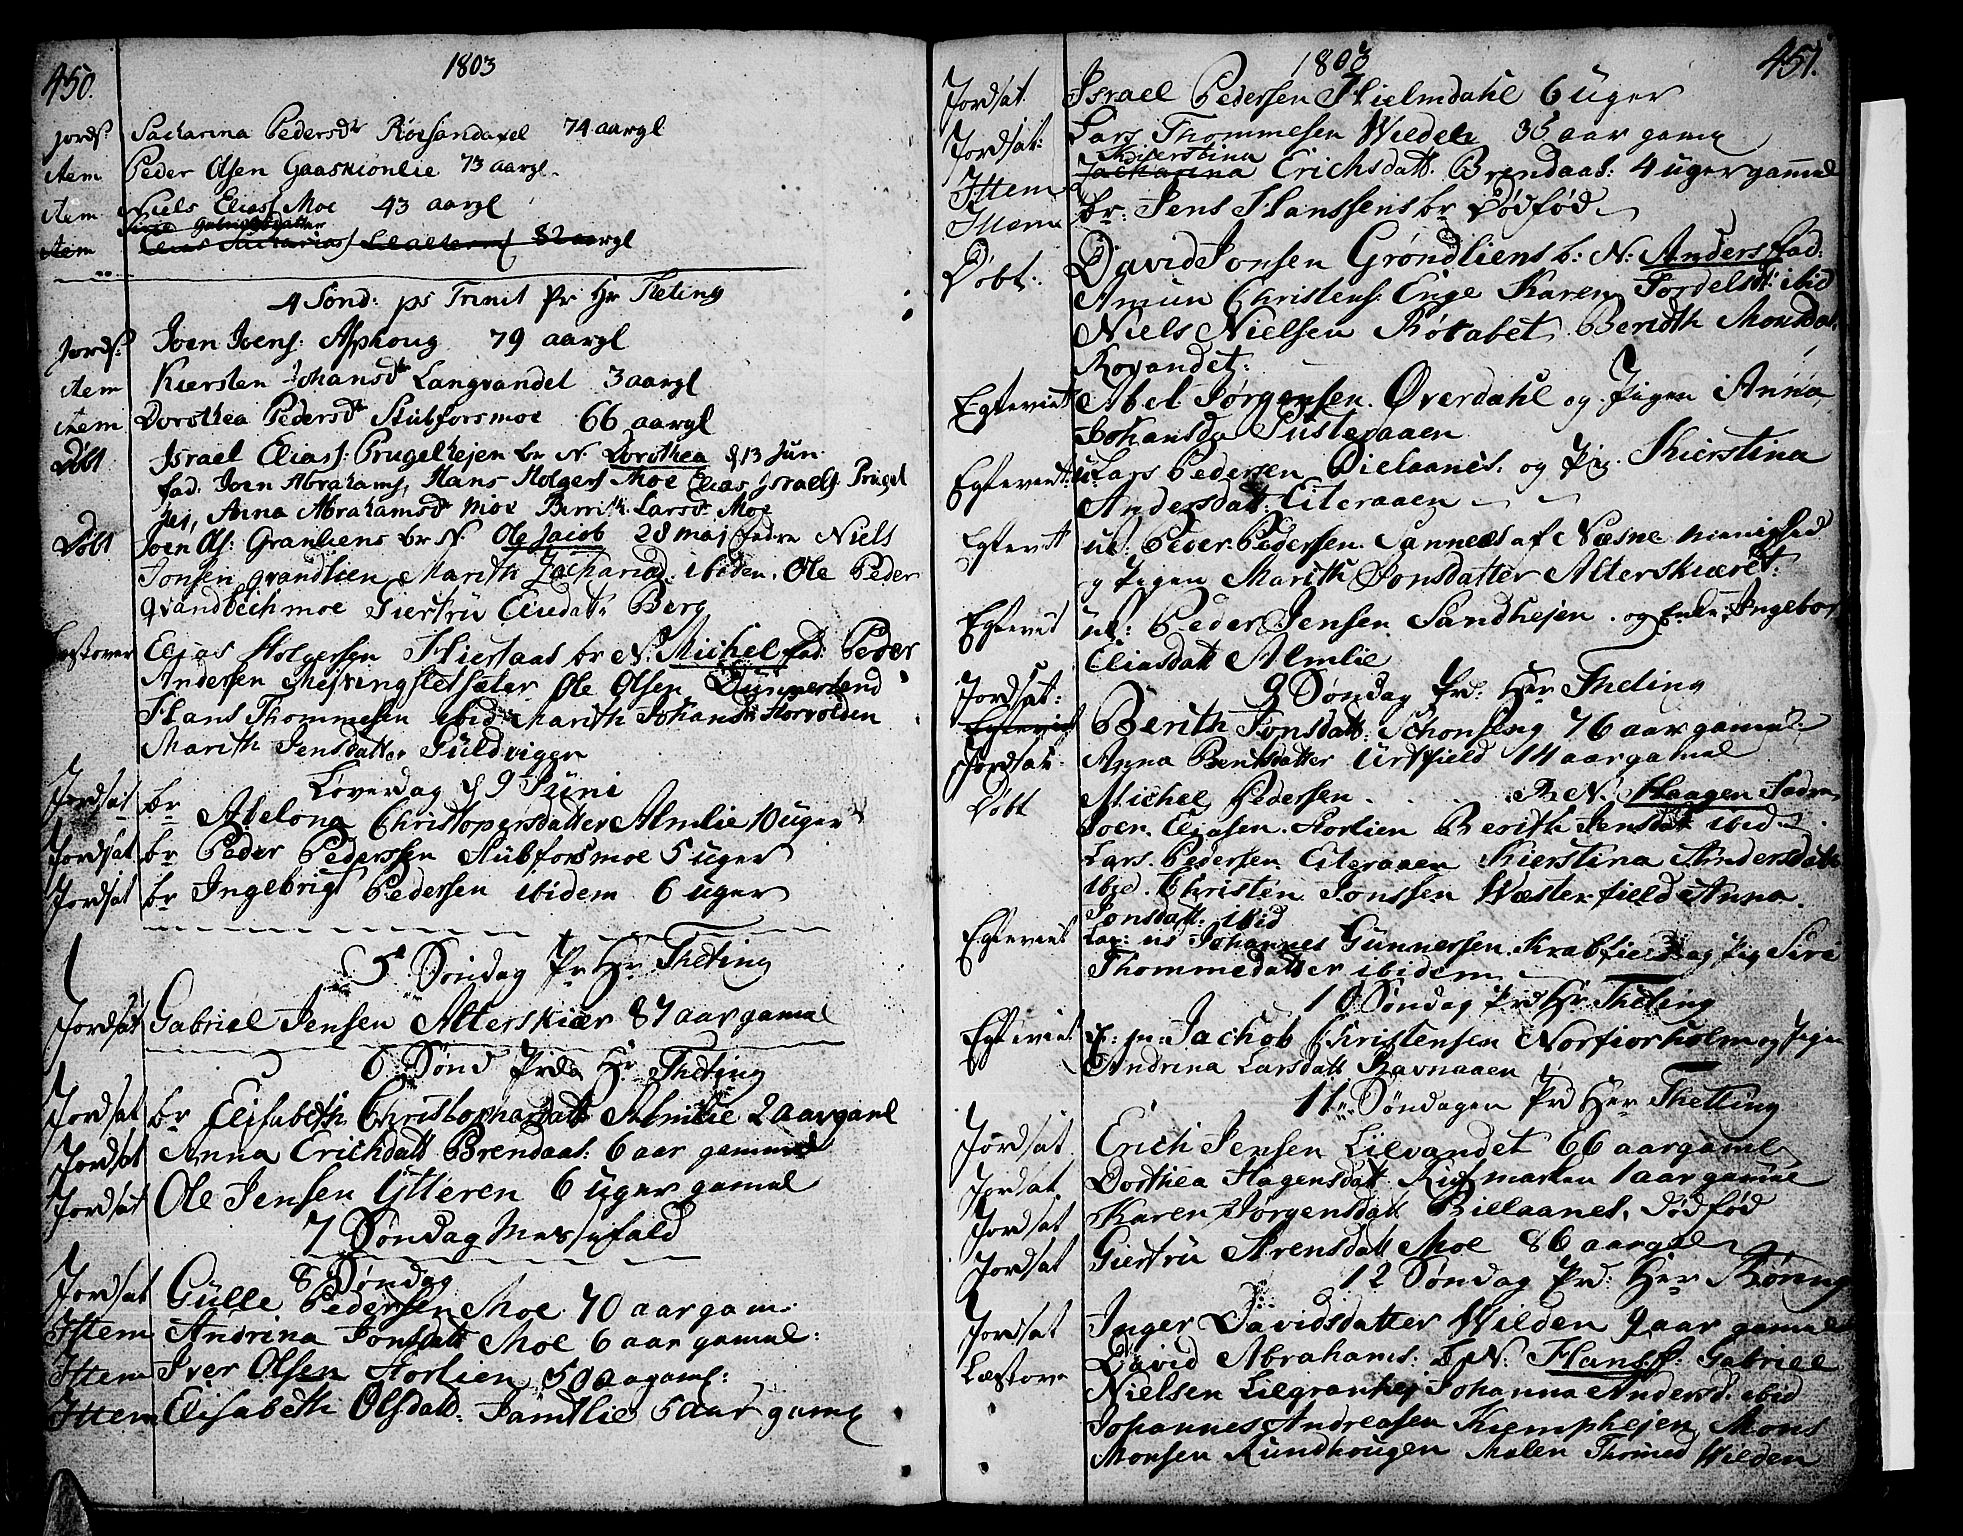 450.
1803
Jords: Sacharina Pedersdtr Røesandaxel 74 aargl
Item Peder Olsen Gaaskionlie 73 aargl.
Item Niels Elias: Moe 43 aargl
Item Elias Zacharias: 82 aargl
4 Sønd: ps Trinit Pr Hr Theting
Jords: Joen Joens: Asphoug 79 aargl
Item Kiersten Johansdtr Langvandet 3 aargl
Item Dorothea Pedersdtr Stubforsmoe 66 aargl
Døbt Israel Elias: Prugelhejen br N. Dorothea d 13 Jun
fad: Joen Abrahams, Hans Holgers Moe Elias Israels Prugel
hei, Anna Abrahamsd Moe Berrit Larsd Moe
Døbt Joen Ols: Granliens br N. Ole Jacob 28 maj fadre Niels
Jonsen grandlien Marith Zachariad: ibiden. Ole Peder
gvandbechmoe Giertrü Berg
Læstover Elias Holgersen Hiertaas br N. Michel fad: Peder
Andersen Messingsletsæter Ole Olsen Dunnerlend
Hans Thommesen ibid Marith Johansd Storvolden
Marith Jensdatter Guldvigen
Løverdag d 9 Juni
Jordsat br Abelona Christopersdatter Almlie 10 uger
Jordsat br Peder Pederssen Stubforsmoe 5 uger
Jordsat br Ingebrigt Pedersen ibidem 6 uger
5 Søndag Pr Hr Theting
Jordsat Gabriel Jensen Alterskiær 87 aar gamal
6 Sønd Præd Hr Theting
Jordsat br Elisabeth Christophersdatt Almlie 2 aar gaml
Jordsat Anna Erichdatt Brendaas: 6 aar gammel
Jordsat Ole Jensen Ytteren 6 uger gamal
7 Søndag Messefald
8 Søndag
Jordsat Gülle Pedersen Moe 70 aar gam:
Ittem Andrina Jonsdatt Moe 6 aar gamal:
Ittem Iver Olsen Storlien 50 gaml:
Ittem Elisabeth Olsdatt: Jamtlie 5 aar gamel
1803
451.
Jordsat Israel Pedersen Hielmdahl 6 uger
Jordsat: Lars Thommesen Wilden 36 aar gamel
Kiierstina
Ittem Zacharina Erichsdatt: Brendaas: 4 uger gammel
Ittem br: Jens Hanssens br Dødfød
Døbt: David Jonsen Grøndliens b: N: Anders fad:
Amun Christens: Enge Karen Tordelsd: ibid
Niels Nielsen Røtabet Berith Monsdat:
Rovandet:
Egteviet Abel Jørgensen Øverdahl og Pigen Anna
Johansda Pusteraaen
Egteviet: Lars Pedersen Dielaanes. og Pig. Kierstina
Andersdatt: Eiteraaen
Egteviet ul: Peder Pedersen Sannæs af Næsne Menighed
og Pigen Marith Jonsdatter Alterskiæret:
Egteviet ul: Peder Jensen Sandhejen. og Enke: Ingebor
Eliasdatt Almlie
9 Søndag Præ: Her Theting
Jordsat: Berith Jonsdatt: Schonseng 76 aar gamal
Egteviet
Jordsat Anna Bentsdatter Urtfield 14 aar gamal
Døbt Michel Pedersen. B N. Haagen Fadre
Joen Eliasen Storlien Berith Jensdatt ibid
Lars Pedersen Eiteraaen Kierstina Andersdatt
ibid. Christen Jonssen Wæsterfield Anna.
Jonsdatt: ibid
Egteviet Johannes Gunnersen Krabfield og Pig Siri
Thommedatter ibidem
10 Søndag Præd Hr Theting
Egteviet Jachob Christensen Norfiorholm og Pigen
Andrina Larsdatt Ravnaaen
11 Søndagen Præd Her Thetting
Jordsat Erich Jensen Lilvandet 66 aar gaml
Jordsat Dorthea Hagensdatt 1 aar gamal
Jordsat Karen Jørgensdatt Billaanes. Dødfød
Jordsat Giertrü Arensdatt Moe 86 aargal
12 Søndag Præd: Her Røring
Jordsat Inger Davidsdatter Wilden 9 aar gamal
Læstove David Abrahams: B N: Hans f: Gabriel
Nielsen Lilgranhej Johanna Andersd: ibid
Johannes Andreasen Kiemphejen Mons
Monsen Rundhougen Malen Thomesd Wilden